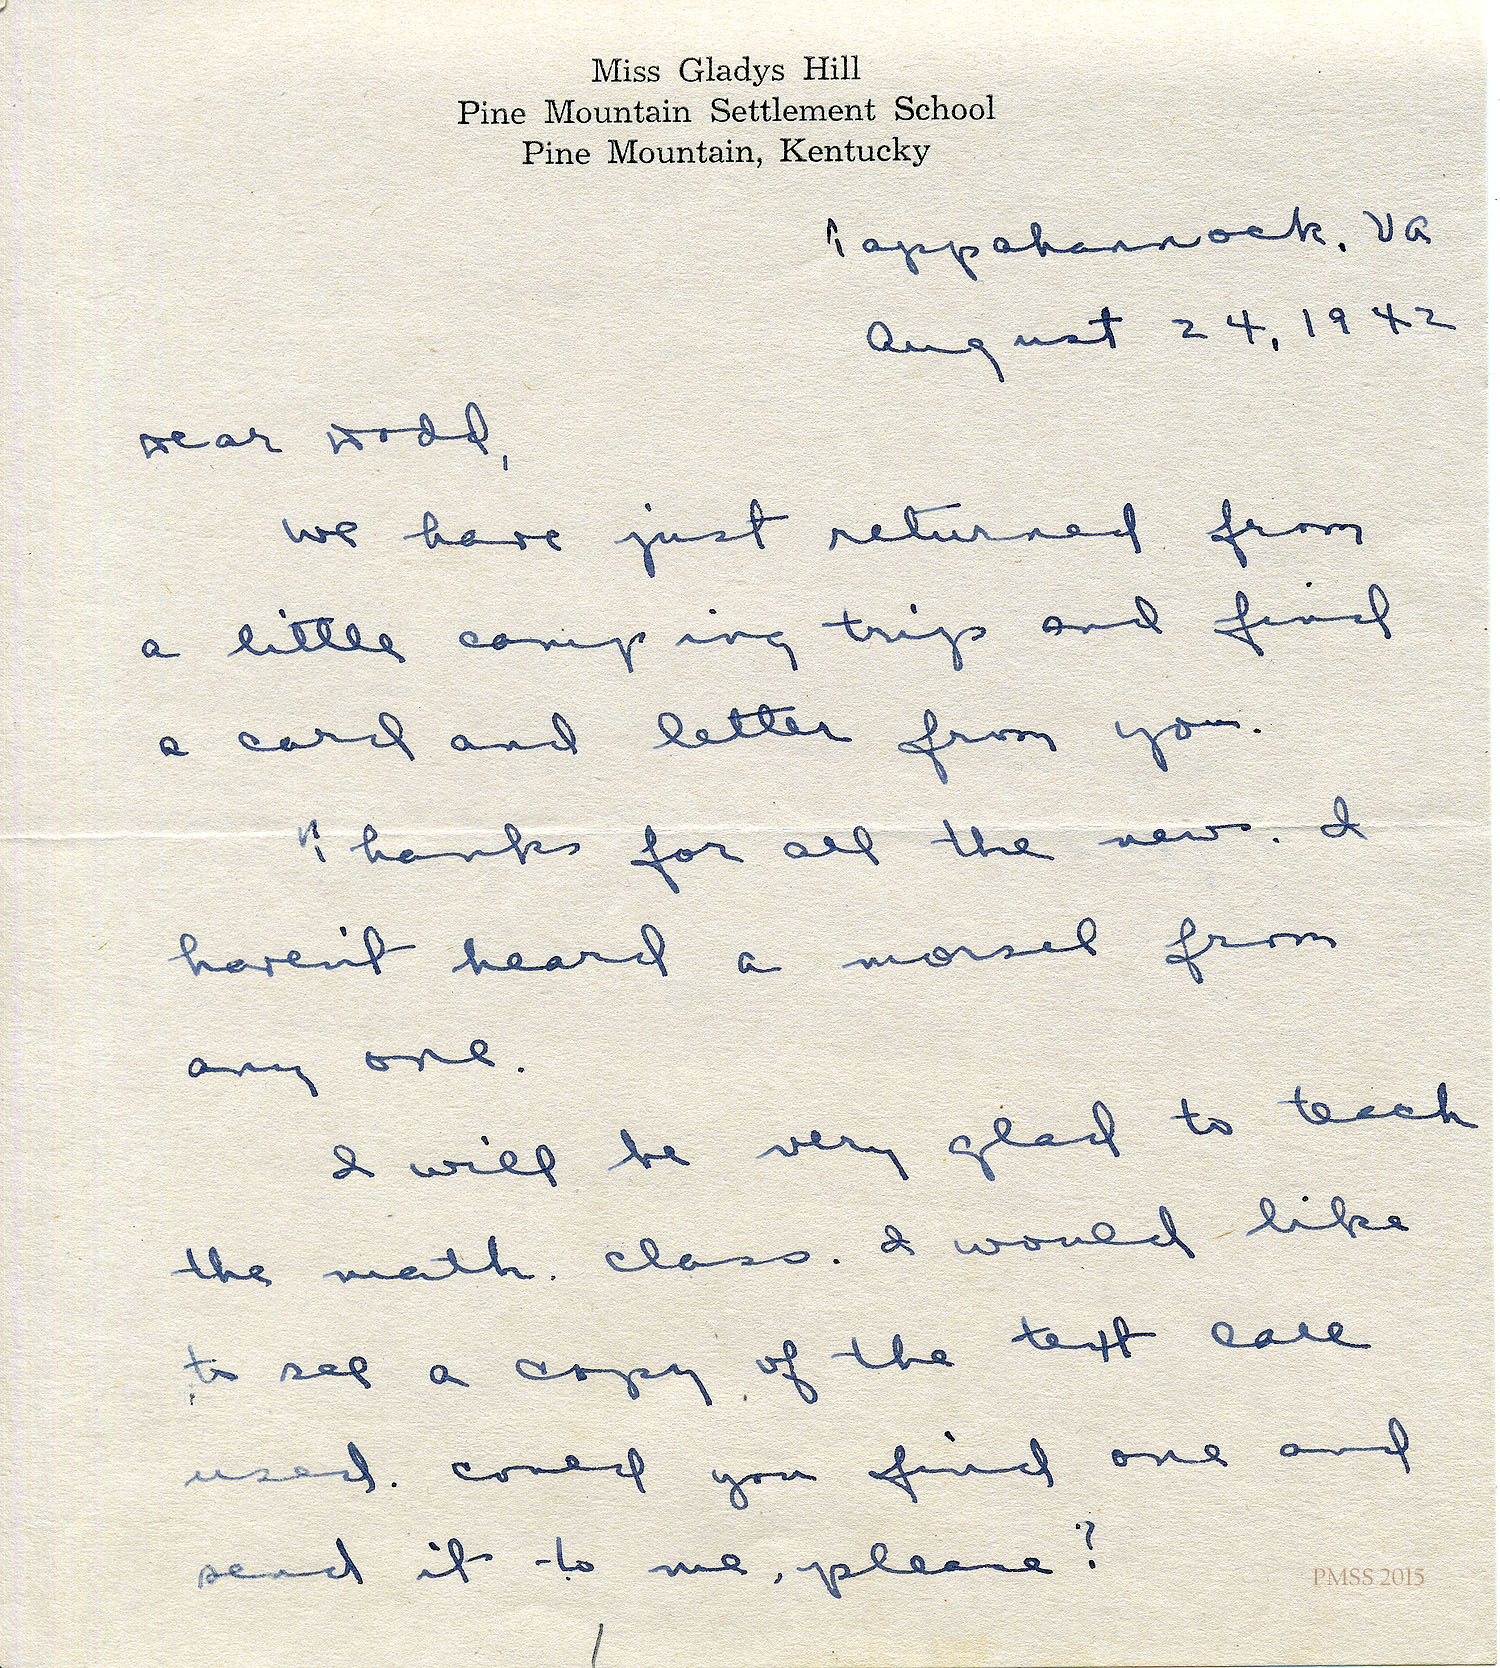 Miss Gladys Hill
Pine Mountain Settlement School
Pine Mountain, Kentucky
Tappahannock, VA
August 24, 1942
Dear Dodd,
We have just returned from
a little camping trip and find
a card and letter from you.
Thanks for all the news. I
haven't heard a morsel from
any one.
I will be very glad to teach
the math. class. I would like
to see a copy of the text
used. Could you find one and
send it to me, please?
PMSS 2015